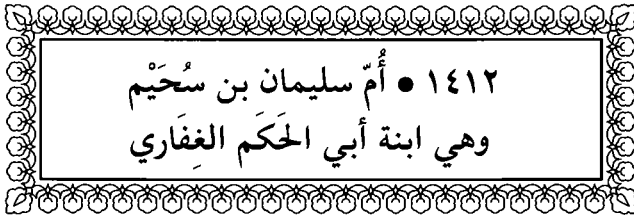 ١٤١٢ ● أُمّ سليمان بن سُحَيْم
وهي ابنة أبي الحَكَم الغِفَاري